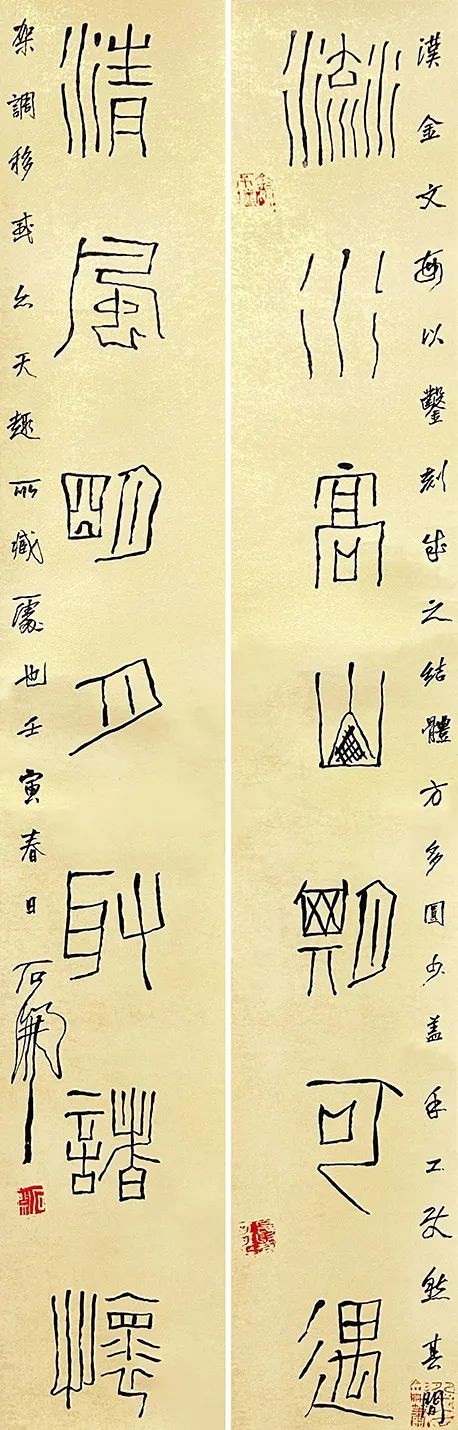 漢金文每以鑿刻成之結體方多圓少蓋手工致然其間
流水高山期可遇
清風明月取諸懷
架調移或天趣所臧處也壬寅春日石開